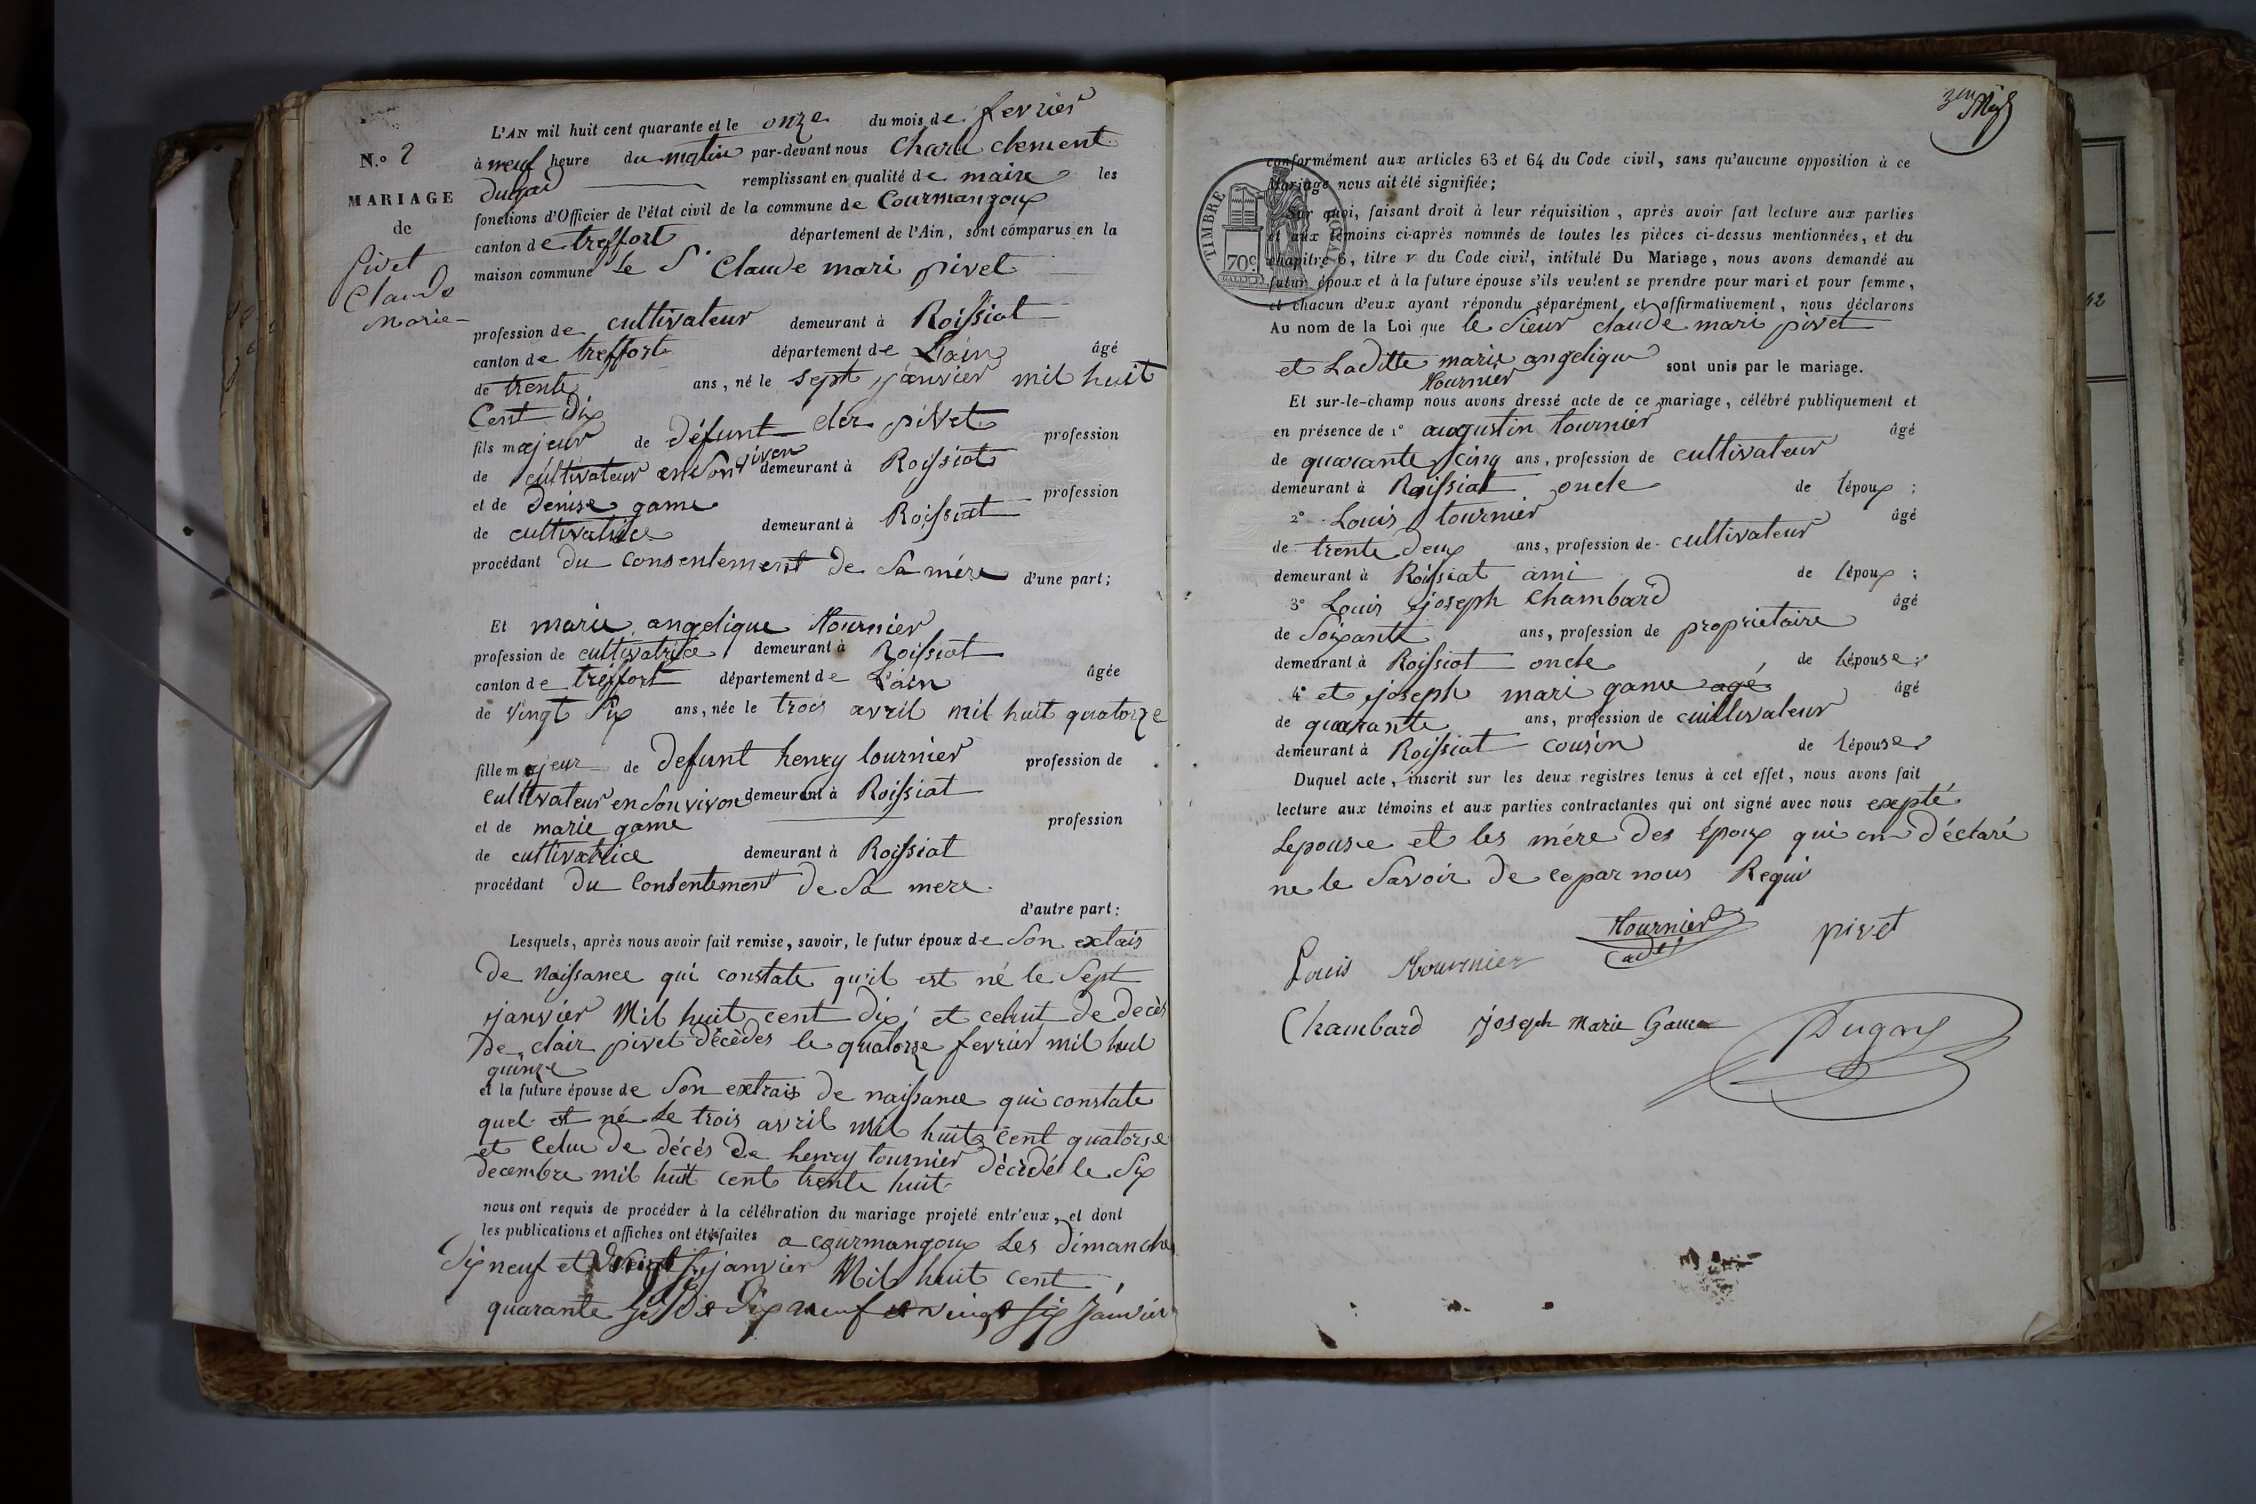 N.º 2
MARIAGE
de
Pivet
Claude
Marie
L'AN mil huit cent quarante et le onze du mois de fevrier
à neuf heure du matin par-devant nous Charle clement
dugad remplissant en qualité de maire les
fonctions d'Officier de l'état civil de la commune de Courmangoux
canton de treffort département de l'Ain, sont comparus en la
maison commune Le Sr Claude mari pivet
profession de cultivateur demeurant à Roissiat
canton de treffort département de L'ain âgé
de trente ans, né le sept janvier mil huit
Cent Dix
fils majeur de défunt cler pivet profession
de cultivateur en Son viven demeurant à Roissiat
et de Denise game profession
de cultivatrice demeurant à Roissiat
procédant du Consentement de Sa mére d'une part;
Et marie angelique tournier
profession de cultivatrice demeurant à Roissiat
canton de treffort département de L'ain âgée
de vingt Six ans, née le trois avril mil huit quatorze
fille majeur de defunt henry tournier profession de
cultivateur en Son vivon demeurant à Roissiat
et de marie game profession
de cultivatrice demeurant à Roissiat
procédant du Consentement de Sa mere
d'autre part:
Lesquels, après nous avoir fait remise, savoir, le futur époux de Son extais
de Naissance qui constate qu'il est né le Sept
janvier Mil huit cent Dix et celuit de decès
De clair pivet décèdes le quatorze fevrier mil huit
quinze
et la future épouse de Son extrais de naissance qui constate
quel est né Le trois avril Mil huit Cent quatorse
et Celui de décés de henry tournier décèdé le Six
decembre mil huit cent trente huit
nous ont requis de procéder à la célébration du mariage projeté entr'eux, et dont
les publications et affiches ont été faites a courmangoux Les dimanche
Dix neuf et vingt six janvier Mil huit cent
quarante Dix neuf et vingt six Janvier
conformément aux articles 63 et 64 du Code civil, sans qu'aucune opposition à ce
mariage nous ait été signifiée;
TIMBRE ROYAL
70c
Sur quoi, faisant droit à leur réquisition, après avoir fait lecture aux parties
et aux témoins ci-après nommés de toutes les pièces ci-dessus mentionnées, et du
chapitre 6, titre v du Code civil, intitulé Du Mariage, nous avons demandé au
futur époux et à la future épouse s'ils veulent se prendre pour mari et pour femme,
et chacun d'eux ayant répondu séparément et affirmativement, nous déclarons
Au nom de la Loi que le Sieur claude mari pivet
et Laditte marie angelique sont unis par le mariage.
tournier
Et sur-le-champ nous avons dressé acte de ce mariage, célébré publiquement et
en présence de 1° augustin tournier âgé
de quarante cinq ans, profession de cultivateur
demeurant à Roissiat oncle de l'époux;
2° Louis tournier âgé
de trente deux ans, profession de cultivateur
demeurant à Roissiat ami de l'époux;
3° Louis joseph Chambard âgé
de Soixante ans, profession de proprietaire
demeurant à Roissiat oncle de l'épouse;
4° et joseph mari game agé âgé
de quarante ans, profession de cuiltivateur
demeurant à Roissiat cousin de l'épouse
Duquel acte, inscrit sur les deux registres tenus à cet effet, nous avons fait
lecture aux témoins et aux parties contractantes qui ont signé avec nous expté
Lepouse et les mére des époux qui on d'éclaré
ne le Savoir de ce par nous Requi
Tournier pivet
Louis Tournier
Chambard joseph Marie Game
Dugad